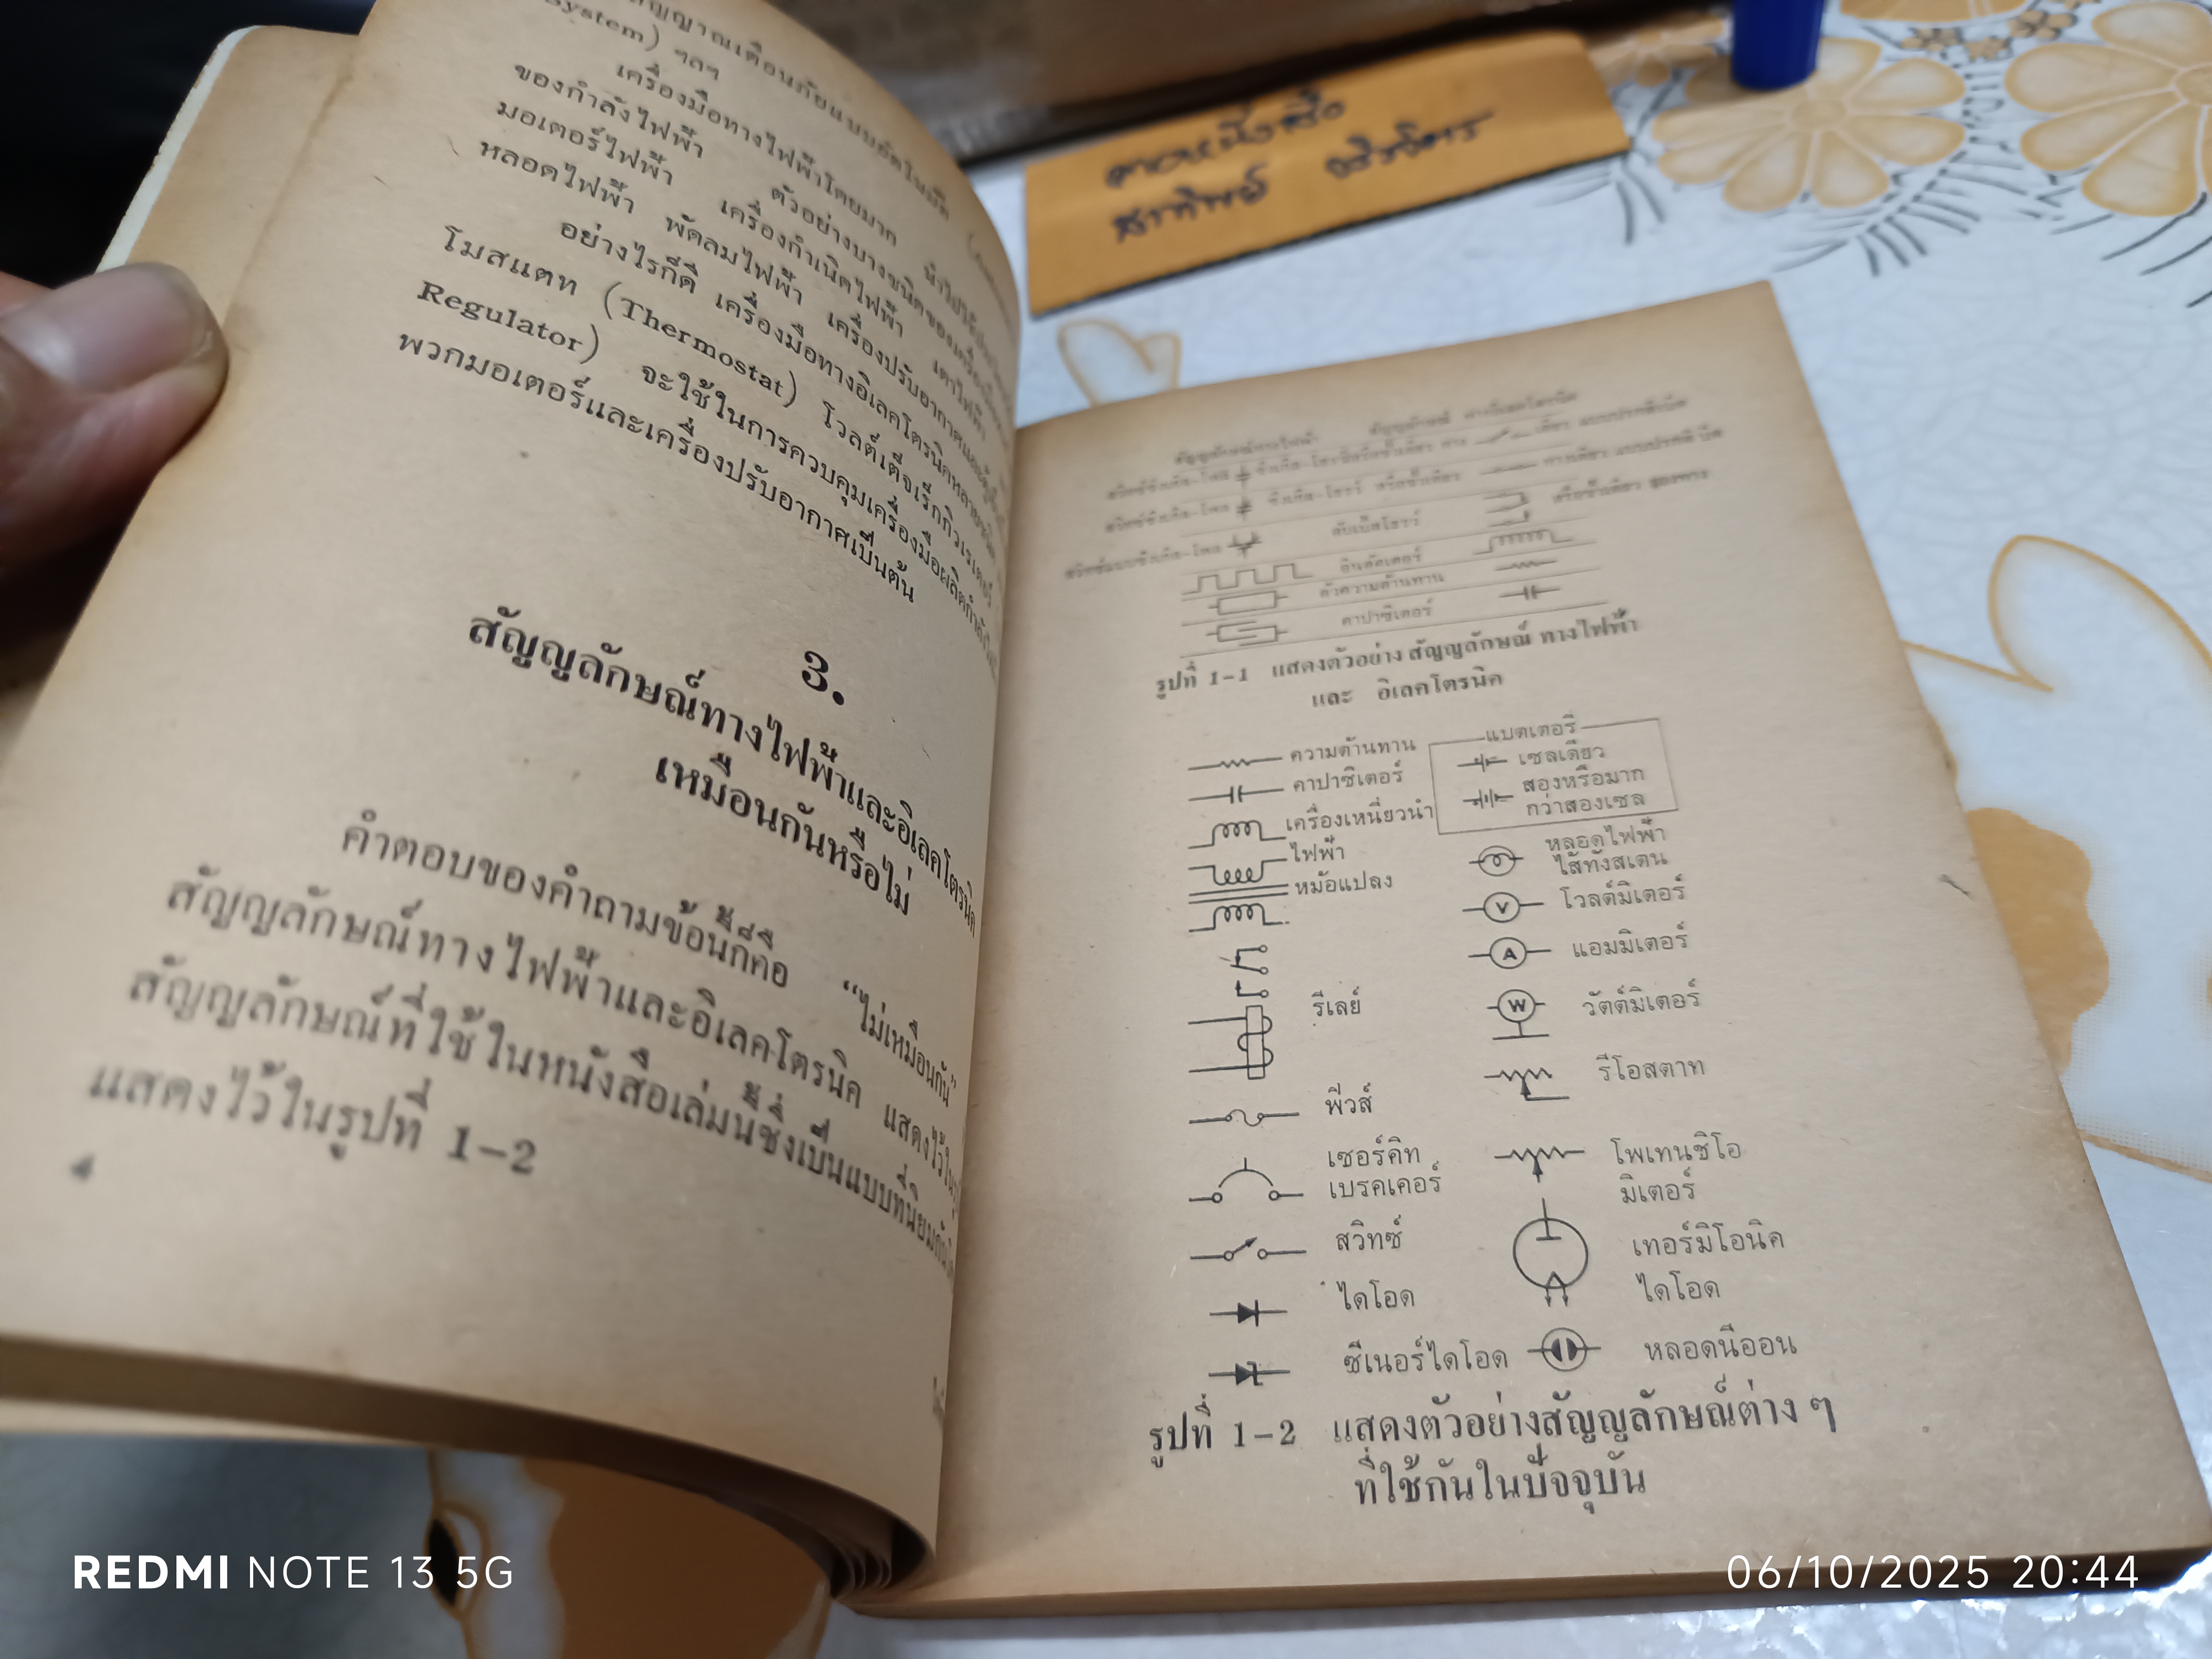 System) ฯลฯ
เครื่องมือทางไฟฟ้าโดยมาก
ของกำลังไฟฟ้า ตัวอย่างบางชนิดของเครื่องมือ
มอเตอร์ไฟฟ้า เครื่องกำเนิดไฟฟ้า เตาไฟฟ้า
หลอดไฟฟ้า พัดลมไฟฟ้า เครื่องปรับอากาศและตู้เย็น
อย่างไรก็ดี เครื่องมือทางอิเลคโตรนิคหลายชนิด
โมสแตท (Thermostat) โวลต์เต็จเร็กกิวเรเตอร์
Regulator) จะใช้ในการควบคุมเครื่องมือผลิตกำลัง
พวกมอเตอร์และเครื่องปรับอากาศเป็นต้น
3.
สัญญลักษณ์ทางไฟฟ้าและอิเลคโตรนิค
เหมือนกันหรือไม่
คำตอบของคำถามข้อนี้ก็คือ “ไม่เหมือนกัน”
สัญญลักษณ์ทางไฟฟ้าและอิเลคโตรนิค แสดงไว้ใน
สัญญลักษณ์ที่ใช้ในหนังสือเล่มนี้ซึ่งเป็นแบบที่นิยมกัน
แสดงไว้ในรูปที่ 1–2
4
สัญญลักษณ์ทางไฟฟ้า สัญญลักษณ์ ทางอิเลคโตรนิค
อินดัคเตอร์
ตัวความต้านทาน
คาปาซิเตอร์
รูปที่ 1–1 แสดงตัวอย่าง สัญญลักษณ์ ทางไฟฟ้า
และ อิเลคโตรนิค
ความต้านทาน
คาปาซิเตอร์
เครื่องเหนี่ยวนำ
ไฟฟ้า
หม้อแปลง
รีเลย์
ฟิวส์
เซอร์คิท
เบรคเคอร์
สวิทซ์
ไดโอด
ซีเนอร์ไดโอด
แบตเตอรี่
เซลเดียว
สองหรือมาก
กว่าสองเซล
หลอดไฟฟ้า
ไส้ทังสเตน
V โวลต์มิเตอร์
A แอมมิเตอร์
W วัตต์มิเตอร์
รีโอสตาท
โพเทนชิโอ
มิเตอร์
เทอร์มิโอนิค
ไดโอด
หลอดนีออน
รูปที่ 1–2 แสดงตัวอย่างสัญญลักษณ์ต่าง ๆ
ที่ใช้กันในปัจจุบัน
REDMI NOTE 13 5G
06/10/2025 20:44